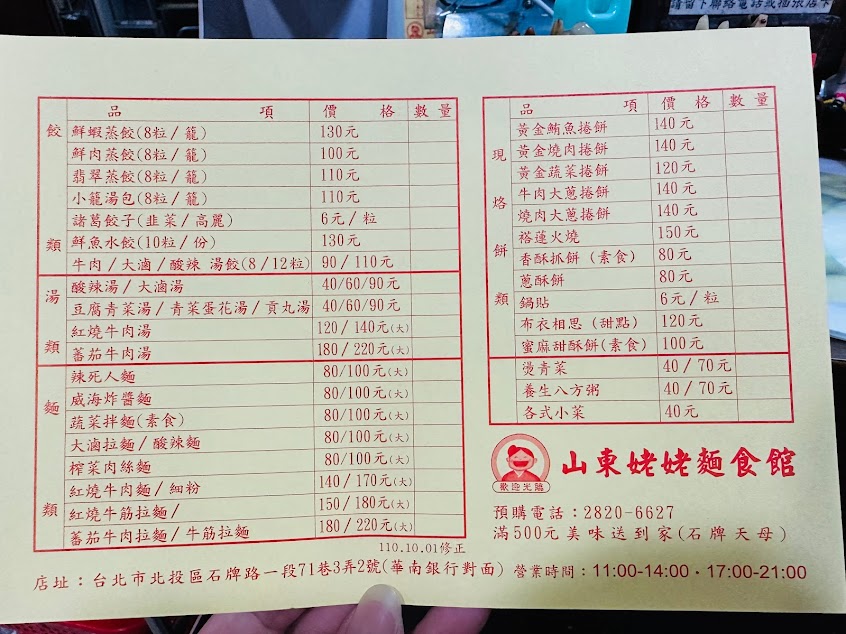 請留下聯絡電話或插張店卡
品項 價格 數量
餃類
鮮蝦蒸餃(8粒/籠) 130元
鮮肉蒸餃(8粒/籠) 100元
翡翠蒸餃(8粒/籠) 110元
小籠湯包(8粒/籠) 110元
諸葛餃子(韭菜/高麗) 6元/粒
鮮魚水餃(10粒/份) 130元
牛肉/大滷/酸辣 湯餃(8/12粒) 90/110元
湯類
酸辣湯/大滷湯 40/60/90元
豆腐青菜湯/青菜蛋花湯/貢丸湯 40/60/90元
紅燒牛肉湯 120/140元(大)
蕃茄牛肉湯 180/220元(大)
麵類
辣死人麵 80/100元(大)
威海炸醬麵 80/100元(大)
蔬菜拌麵(素食) 80/100元(大)
大滷拉麵/酸辣麵 80/100元(大)
榨菜肉絲麵 80/100元(大)
紅燒牛肉麵/細粉 140/170元(大)
紅燒牛筋拉麵/ 150/180元(大)
蕃茄牛肉拉麵/牛筋拉麵 180/220元(大)
110.10.01修正
品項 價格 數量
現烙餅類
黃金鮪魚捲餅 140元
黃金燒肉捲餅 140元
黃金蔬菜捲餅 120元
牛肉大蔥捲餅 140元
燒肉大蔥捲餅 140元
褡蓮火燒 150元
香酥抓餅(素食) 80元
蔥酥餅 80元
鍋貼 6元/粒
布衣相思(甜點) 120元
蜜麻甜酥餅(素食) 100元
燙青菜 40/70元
養生八方粥 40/70元
各式小菜 40元
歡迎光臨
山東姥姥麵食館
預購電話:2820-6627
滿500元美味送到家(石牌天母)
店址:台北市北投區石牌路一段71巷3弄2號(華南銀行對面) 營業時間:11:00-14:00・17:00-21:00